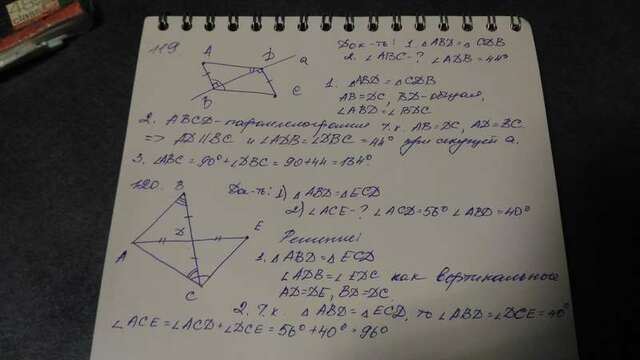 119
A
D
a
B
C
Док-ть: 1. △ABD = △CDB
2. ∠ABC-? ∠ADB = 44°
1. △ABD = △CDB
AB = DC, BD - общая,
∠ABD = ∠BDC
2. ABCD - параллелограмм т.к. AB = DC, AD = BC
=> AD || BC и ∠ADB = ∠DBC = 44° при секущей a.
3. ∠ABC = 90° + ∠DBC = 90 + 44 = 134°
120.
B
D
E
A
C
Док-ть: 1) △ABD = △ECD
2) ∠ACE-? ∠ACD = 56° ∠ABD = 40°
Решение:
1. △ABD = △ECD
∠ADB = ∠EDC как вертикальные
AD = DE, BD = DC.
2. Т.к. △ABD = △ECD, то ∠ABD = ∠DCE = 40°
∠ACE = ∠ACD + ∠DCE = 56° + 40° = 96°